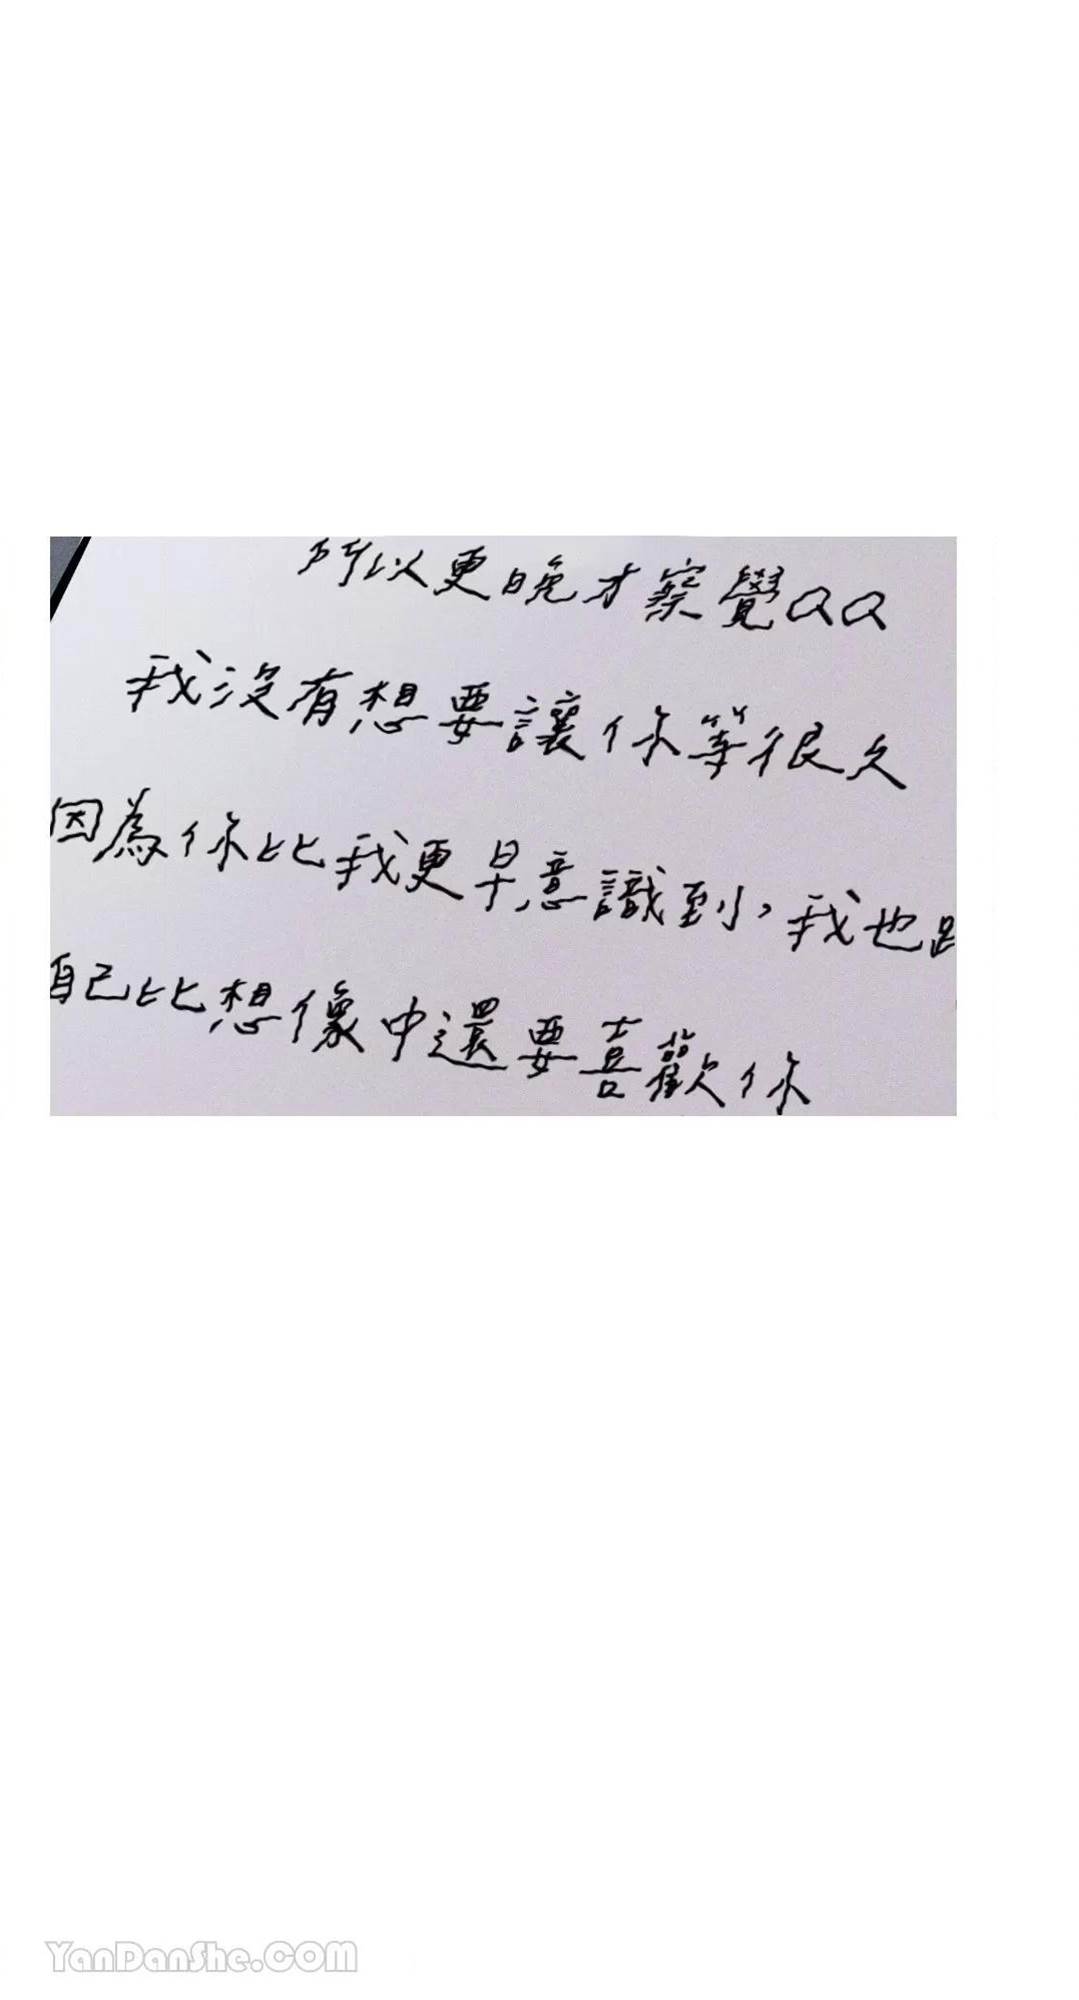 所以更晚才察覺QQ
我沒有想要讓你等很久
因為你比我更早意識到，我也
自己比想像中還要喜歡你
YanDanShe.com